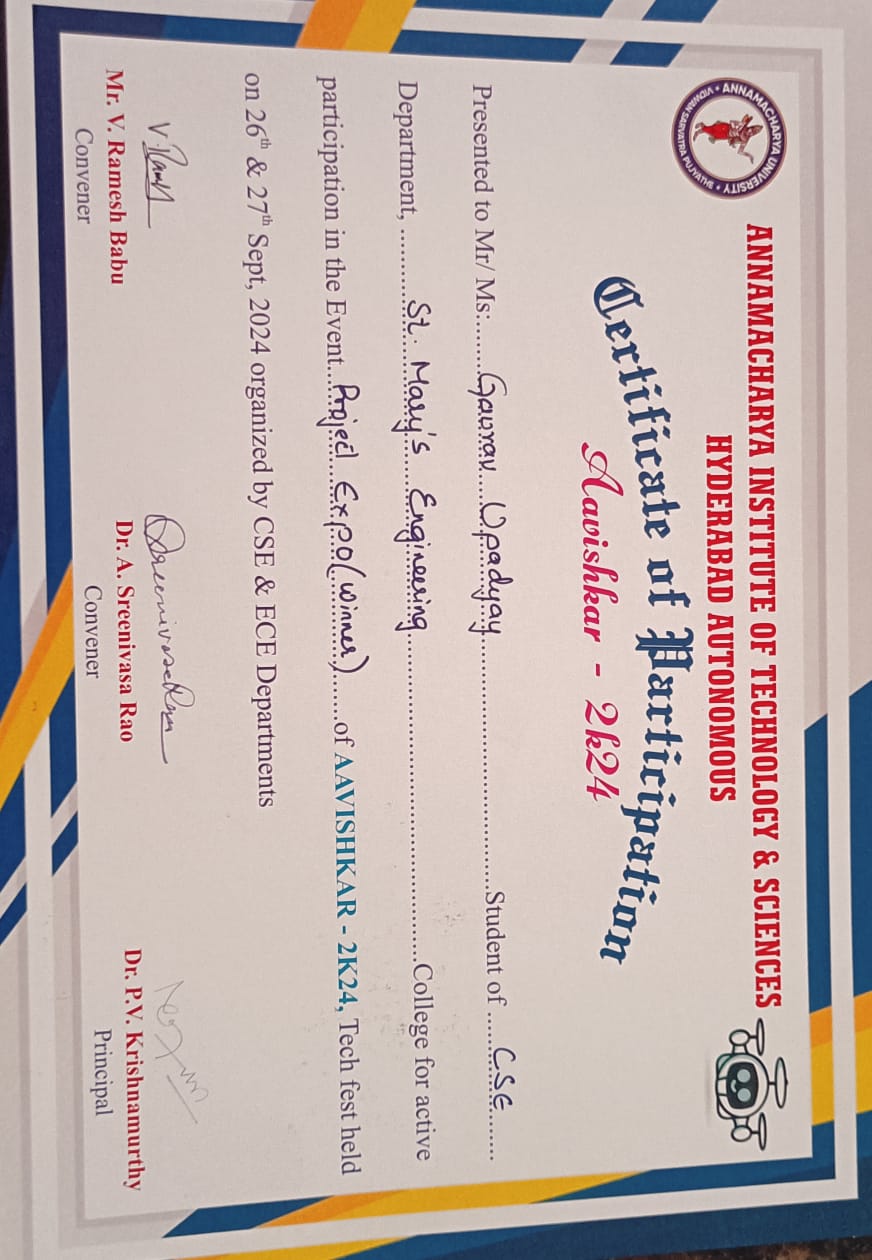 ANNAMACHARYA UNIVERSITY
VIDWAN SARVATRA PUJYATHE
ANNAMACHARYA INSTITUTE OF TECHNOLOGY & SCIENCES
HYDERABAD AUTONOMOUS
Certificate of Participation
Aavishkar - 2k24
Presented to Mr/ Ms:........Gaurav Upadyay........Student of ......CSE......
Department, ........St. Mary's Engineering........College for active
participation in the Event....Project Expo (winner)......of AAVISHKAR - 2K24, Tech fest held
on 26th & 27th Sept, 2024 organized by CSE & ECE Departments
V. Ramesh
Mr. V. Ramesh Babu
Convener
Dr. A. Sreenivasa Rao
Convener
Dr. P.V. Krishnamurthy
Principal